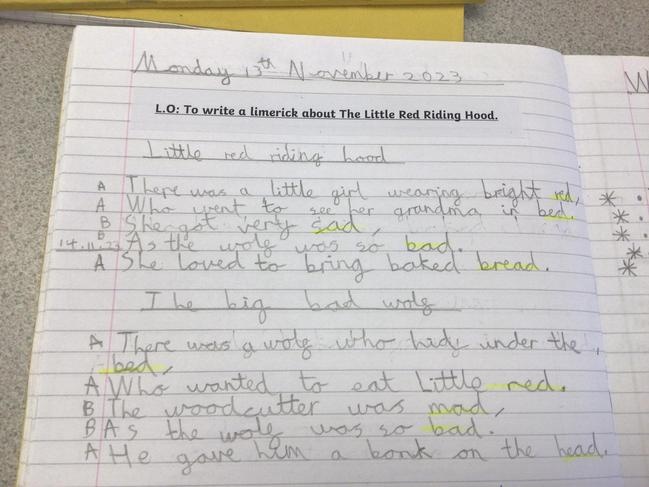 Monday 13th November 2023
L.O: To write a limerick about The Little Red Riding Hood.
Little red riding hood
A There was a little girl wearing bright red,
A Who went to see her grandma in bed.
B She got very sad,
B As the wolf was so bad.
14.11.23
A She loved to bring baked bread.
The big bad wolf
A There was a wolf who hid under the
bed,
A Who wanted to eat Little red.
B The woodcutter was mad,
B As the wolf was so bad.
A He gave him a bonk on the head.